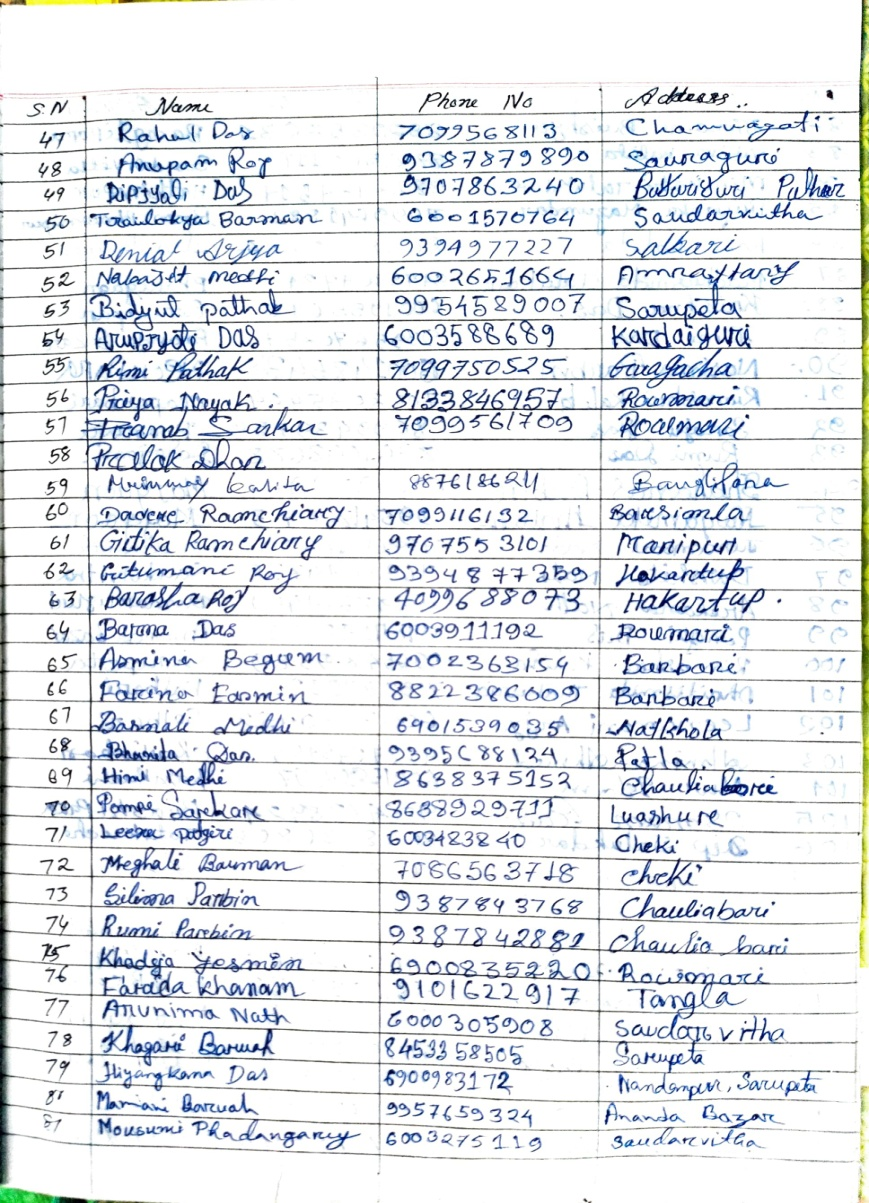 S.N Name Phone No Address..
47 Rahul Das 7099568113 Chamuagati
48 Anupam Roy 9387879890 Sauraguri
49 Dipjyali Das 9707863240 Pathar
50 Barman 6001570764 Saudarvitha
51 Denial Arjya 9394977227 Salkari
52 Nabajit Medhi 6002651664
53 Bidyut pathak 9954589007 Sarupeta
54 Arupjyoti DAS 6003588689 Kardaiguri
55 Rimi Pathak 7099750525 Garagacha
56 Priya Nayak. 8133846957 Rowmari
57 Sarkar 7099561709 Roumari
58 Dhar
59 Mrinmoy kalita 8876186211
60 Ramchiary 7099116132 Barsimla
61 Gitika Ramchiary 9707553101 Manipuri
62 Gitumani Roy 9394877359 Hakartup
63 Barasha Roy 4099688073 HAKartup.
64 Barna Das 6003911192 Roumari
65 Asmina Begum 7002363154 Barbari
66 Farina Easmin 8822386009 Barbari
67 Basmali Medhi 6901539035 Natkhola
68 Bhanita Das. 9395688134 Patla
69 Himi Medhi 8638375152
70 Pompi Sarkar 8638929711
71 6003483840 Cheki
72 Meghali Barman 7086563718 cheki
73 Parbin 9387843768 Chauliabari
74 Rumi Parbin 9387842881 Chaulia bari
75 Khadija Yesmin 6900835220 Rowmari
76 Farida Khanam 9101622917 Tangla
77 Arunima Nath 6000305908 Saudar vitha
78 Khagari Baruah 8453358505 Sarupeta
79 Hiyangkana Das 6900983172 Nandanpur, Sarupeta
Mamani Baruah 9957659324 Ananda Bazar
81 Mousumi Phadangary 6003275119 Saudarvitha